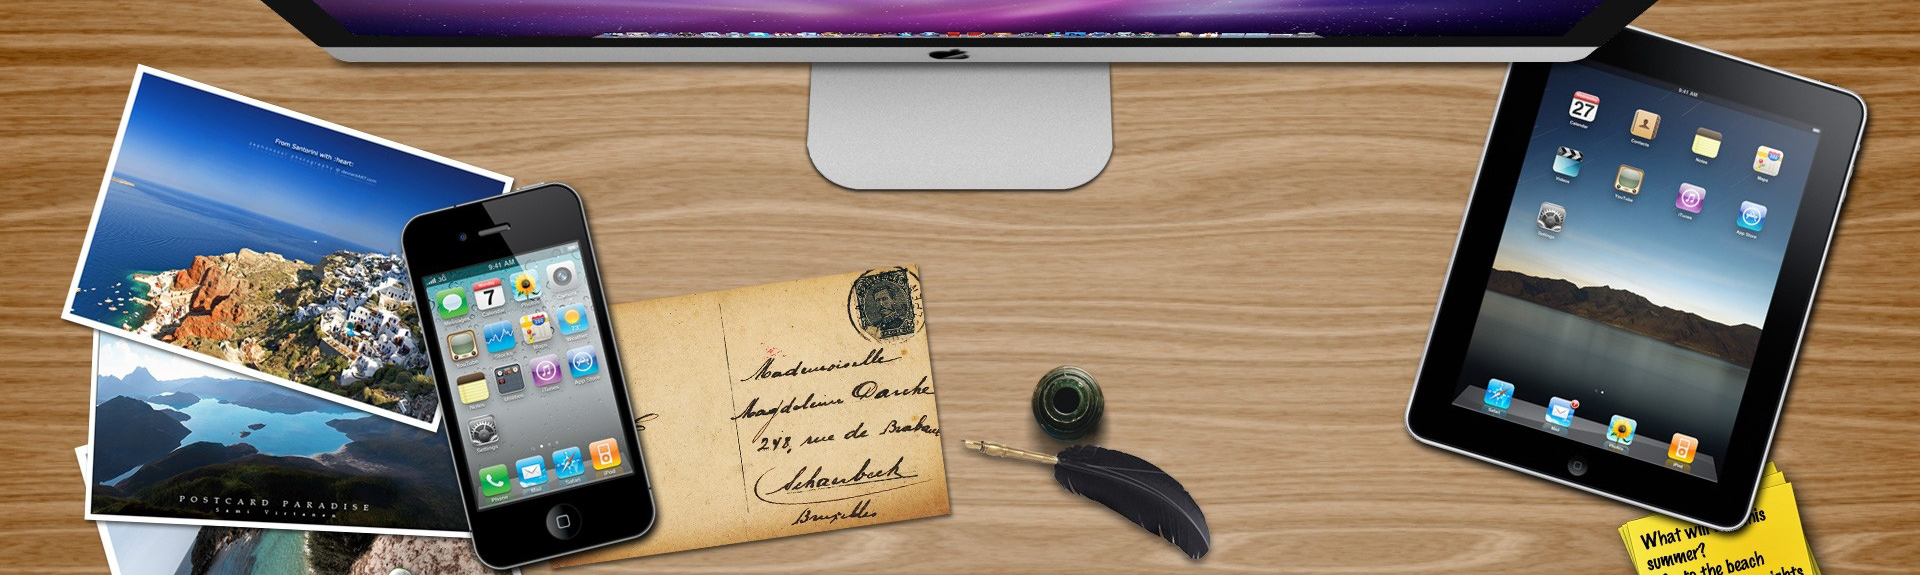 From Santorini with :heart:
POSTCARD PARADISE
Sami Virtanen
9:41 AM
3G
Messages
Monday
7
Calendar
Photos
YouTube
Stocks
Maps
Weather
Notes
Utilities
iTunes
App Store
Settings
Phone
Mail
Safari
iPod
Mademoiselle
Magdeleine
248, rue de
Schaerbeek
Bruxelles
9:41 AM
27
Calendar
Contacts
Notes
Maps
Videos
YouTube
iTunes
App Store
Settings
Safari
Mail
Photos
iPod
What will
summer?
to the beach